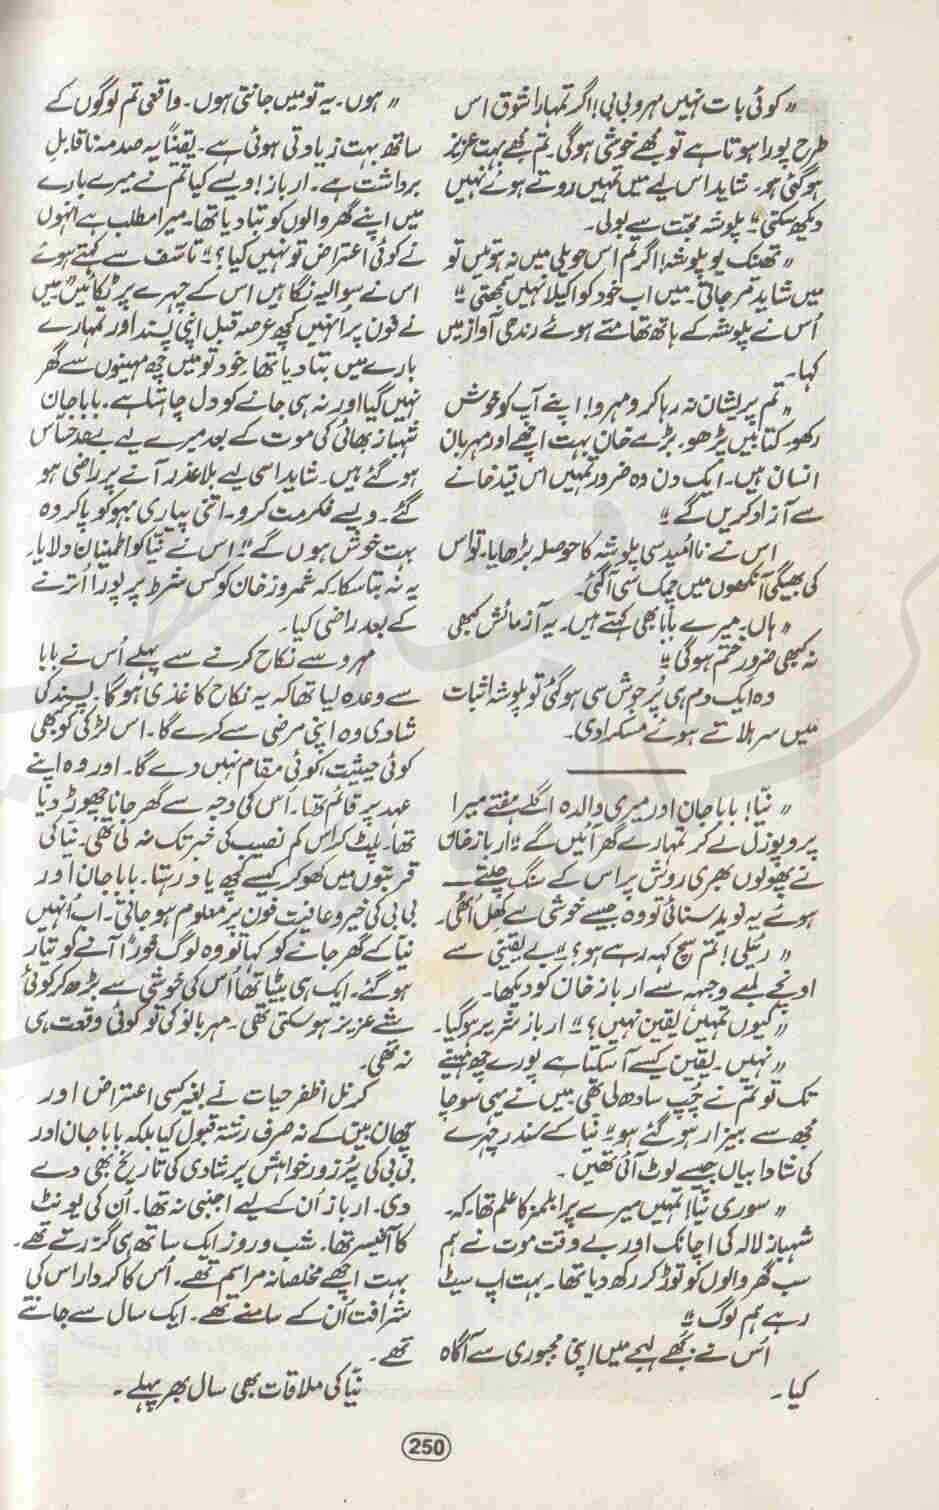 "کوئی بات نہیں مہرو بی بی! اگر تمہارا شوق اس
طرح پورا ہوتا ہے تو مجھے خوشی ہوگی۔ تم مجھے بہت عزیز
ہوگئی ہو۔ شاید اس لیے میں تمہیں روتے ہوئے نہیں
دیکھ سکتی۔" پلوشہ محبت سے بولی۔
"تھینک یو پلوشہ! اگر تم اس حویلی میں نہ ہوتیں تو
میں شاید مر جاتی۔ میں اب خود کو اکیلا نہیں سمجھتی۔"
اُس نے پلوشہ کے ہاتھ تھامتے ہوئے رندھی آواز میں
کہا۔
"تم پریشان نہ رہا کرو مہرو! اپنے آپ کو خوش
رکھو۔ کتابیں پڑھو۔ بڑے خان بہت اچھے اور مہربان
انسان ہیں۔ ایک دن وہ ضرور تمہیں اس قید خانے
سے آزاد کریں گے۔"
اس نے ناامید سی پلوشہ کا حوصلہ بڑھایا۔ تو اس
کی بھیگی آنکھوں میں چمک سی آگئی۔
"ہاں۔ میرے بابا بھی کہتے ہیں۔ یہ آزمائش کبھی
نہ کبھی ضرور ختم ہوگی۔"
وہ ایک دم ہی پُرجوش سی ہوگئی تو پلوشہ اثبات
میں سر ہلاتے ہوئے مسکرا دی۔
"نیّا! بابا جان اور میری والدہ اگلے ہفتے میرا
پروپوزل لے کر تمہارے گھر آئیں گے۔" ارباز خان
نے پھولوں بھری روش پر اس کے سنگ چلتے
ہوئے یہ نوید سنائی تو وہ جیسے خوشی سے کھل اُٹھی۔
"رئیلی! تم سچ کہہ رہے ہو؟" بے یقینی سے
اونچے لمبے وجیہہ سے ارباز خان کو دیکھا۔
"کیوں تمہیں یقین نہیں؟" ارباز شریر ہوگیا۔
"نہیں۔ یقین کیسے آسکتا ہے پورے چھ مہینے
تک تو تم نے چپ سادھ لی تھی میں نے یہی سوچا
مجھ سے بیزار ہوگئے ہو۔" نیا کے سندر چہرے
کی شادابیاں جیسے لوٹ آئی تھیں۔
"سوری نیّا! تمہیں میرے پرابلمز کا علم تھا۔ کہ
شہباز لالہ کی اچانک اور بے وقت موت نے ہم
سب گھر والوں کو توڑ کر رکھ دیا تھا۔ بہت اپ سیٹ
رہے ہم لوگ۔"
اُس نے بجھے لہجے میں اپنی مجبوری سے آگاہ
کیا۔
"ہوں۔ یہ تو میں جانتی ہوں۔ واقعی تم لوگوں کے
ساتھ بہت زیادتی ہوئی ہے۔ یقیناً یہ صدمہ ناقابلِ
برداشت ہے۔ ارباز! ویسے کیا تم نے میرے بارے
میں اپنے گھر والوں کو بتا دیا تھا۔ میرا مطلب ہے انہوں
نے کوئی اعتراض تو نہیں کیا؟" تاسف سے کہتے ہوئے
اس نے سوالیہ نگاہیں اس کے چہرے پر ٹکائیں۔ "میں
نے فون پر اُنہیں کچھ عرصہ قبل اپنی پسند اور تمہارے
بارے میں بتا دیا تھا۔ خود تو میں چھ مہینوں سے گھر
نہیں گیا اور نہ ہی جانے کو دل چاہتا ہے۔ بابا جان
شہباز بھائی کی موت کے بعد میرے لیے بے حد حساس
ہوگئے ہیں۔ شاید اسی لیے بلا عذر آنے پر راضی ہو
گئے۔ ویسے فکر مت کرو۔ اتنی پیاری بہو کو پا کر وہ
بہت خوش ہوں گے۔" اس نے نیّا کو اطمینان دلایا۔
یہ نہ بتا سکا۔ کہ شمروز خان کو کس شرط پر پورا اُترنے
کے بعد راضی کیا۔
مہرو سے نکاح کرنے سے پہلے اُس نے بابا
سے وعدہ لیا تھا کہ یہ نکاح کاغذی ہوگا۔ پسند کی
شادی وہ اپنی مرضی سے کرے گا۔ اس لڑکی کو بھی
کوئی حیثیت، کوئی مقام نہیں دے گا۔ اور وہ اپنے
عہد پر قائم تھا۔ اُس کی وجہ سے گھر جانا چھوڑ دیا
تھا۔ پلٹ کر اس کم نصیب کی خبر تک نہ لی تھی۔ نیا کی
قربتوں میں کھو کر کیسے کچھ یاد رہتا۔ بابا جان اور
بی بی کی خیر و عافیت فون پر معلوم ہو جاتی۔ اب اُنہیں
نیا کے گھر جانے کو کہا تو وہ لوگ فوراً آنے کو تیار
ہوگئے۔ ایک ہی بیٹا تھا اُس کی خوشی سے بڑھ کر کوئی
شے عزیز ہوسکتی تھی۔ مہربانو کی تو کوئی وقعت ہی
نہ تھی۔
کرنل اظفر حیات نے بغیر کسی اعتراض اور
چھان بین کے نہ صرف رشتہ قبول کیا بلکہ بابا جان اور
بی بی کی پُرزور خواہش پر شادی کی تاریخ بھی دے
دی۔ ارباز اُن کے لیے اجنبی نہ تھا۔ اُن کی یونٹ
کا آفیسر تھا۔ شب و روز ایک ساتھ ہی گزرتے تھے۔
بہت اچھے مخلصانہ مراسم تھے۔ اُس کا کردار اس کی
شرافت اُن کے سامنے تھے۔ ایک سال سے جانتے
تھے۔
نیّا کی ملاقات بھی سال بھر پہلے۔
250